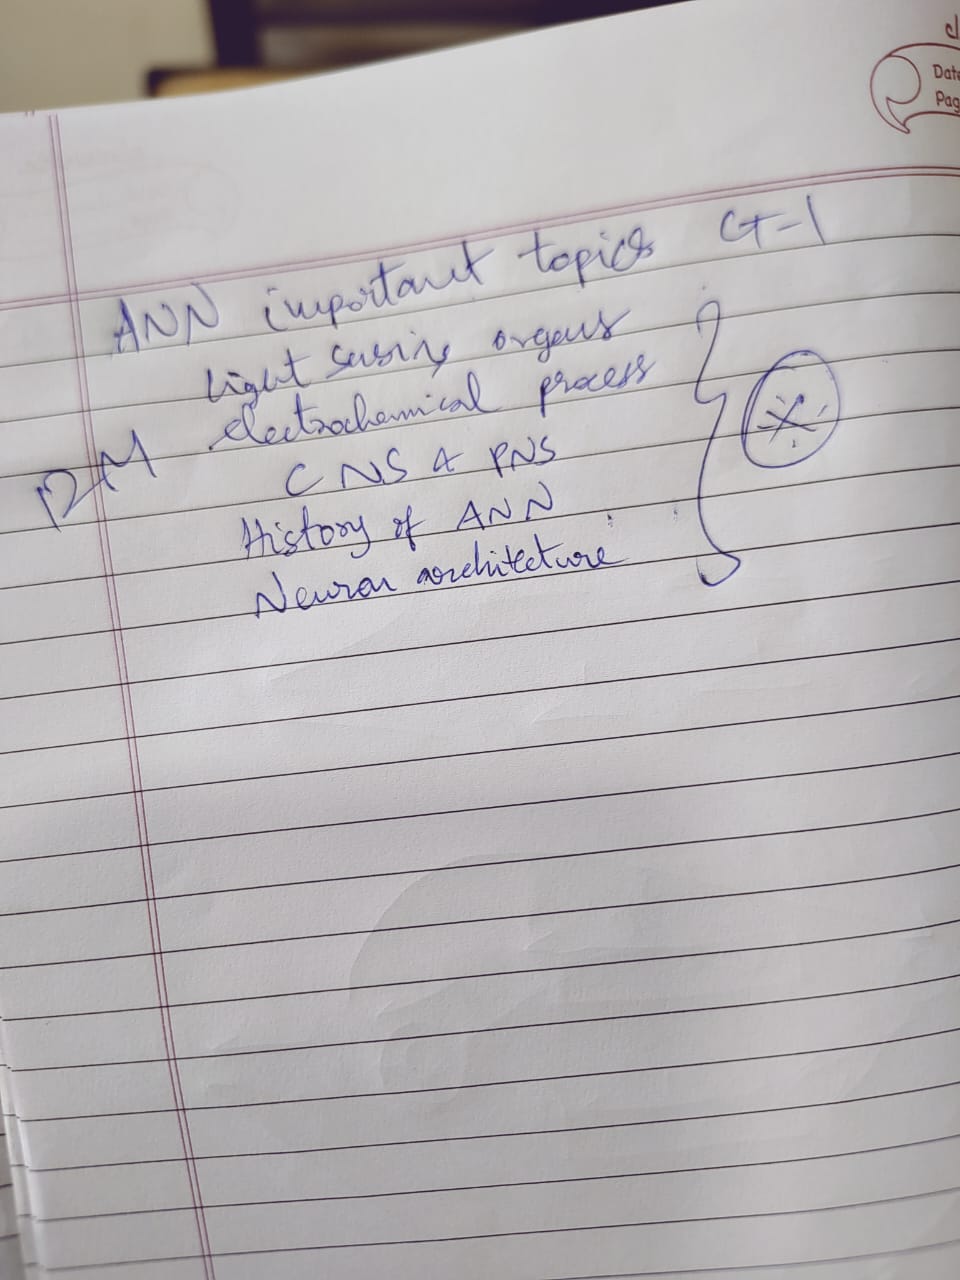 Date
Pag
ANN important topics CT-1
Light sensing organs
electrochemical process
CNS & PNS
History of ANN
Neuron architecture